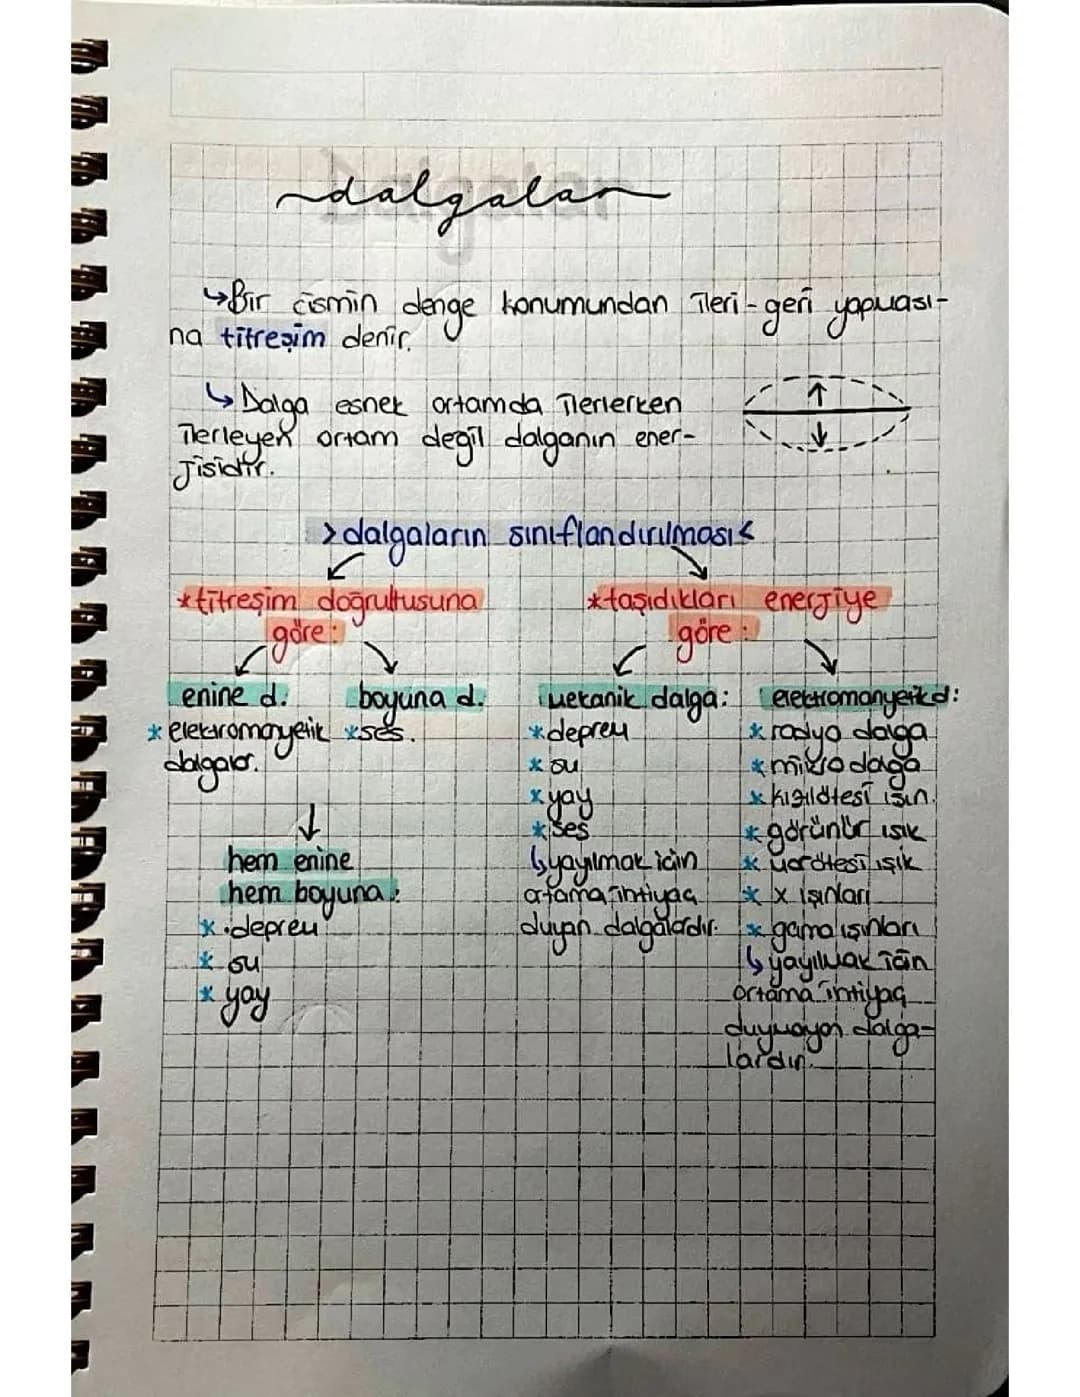 dalgalar
↳Bir cismin denge konumundan ileri-geri yapması-
na titreşim denir.
↳Dalga esnek ortamda ilerlerken
ilerleyen ortam değil dalganın ener-
jisidir.
>dalgaların sınıflandırılması<
*titreşim doğrultusuna
göre:
*taşıdıkları enerjiye
göre:
enine d.
*elektromanyetik
dalgalar.
boyuna d.
*ses.
hem enine
hem boyuna:
*deprem
*su
*yay
mekanik dalga:
*deprem
*su
*yay
*ses
↳yayılmak için
ortama ihtiyaç
duyan dalgalardır.
elektromanyetik d:
*radyo dalga
*mikro dalga
*kızılötesi ışın.
*görünür ışık
*morötesi ışık
*x ışınları
*gama ışınları
↳yayılmak için
ortama ihtiyaç
duymayan dalga-
lardır.